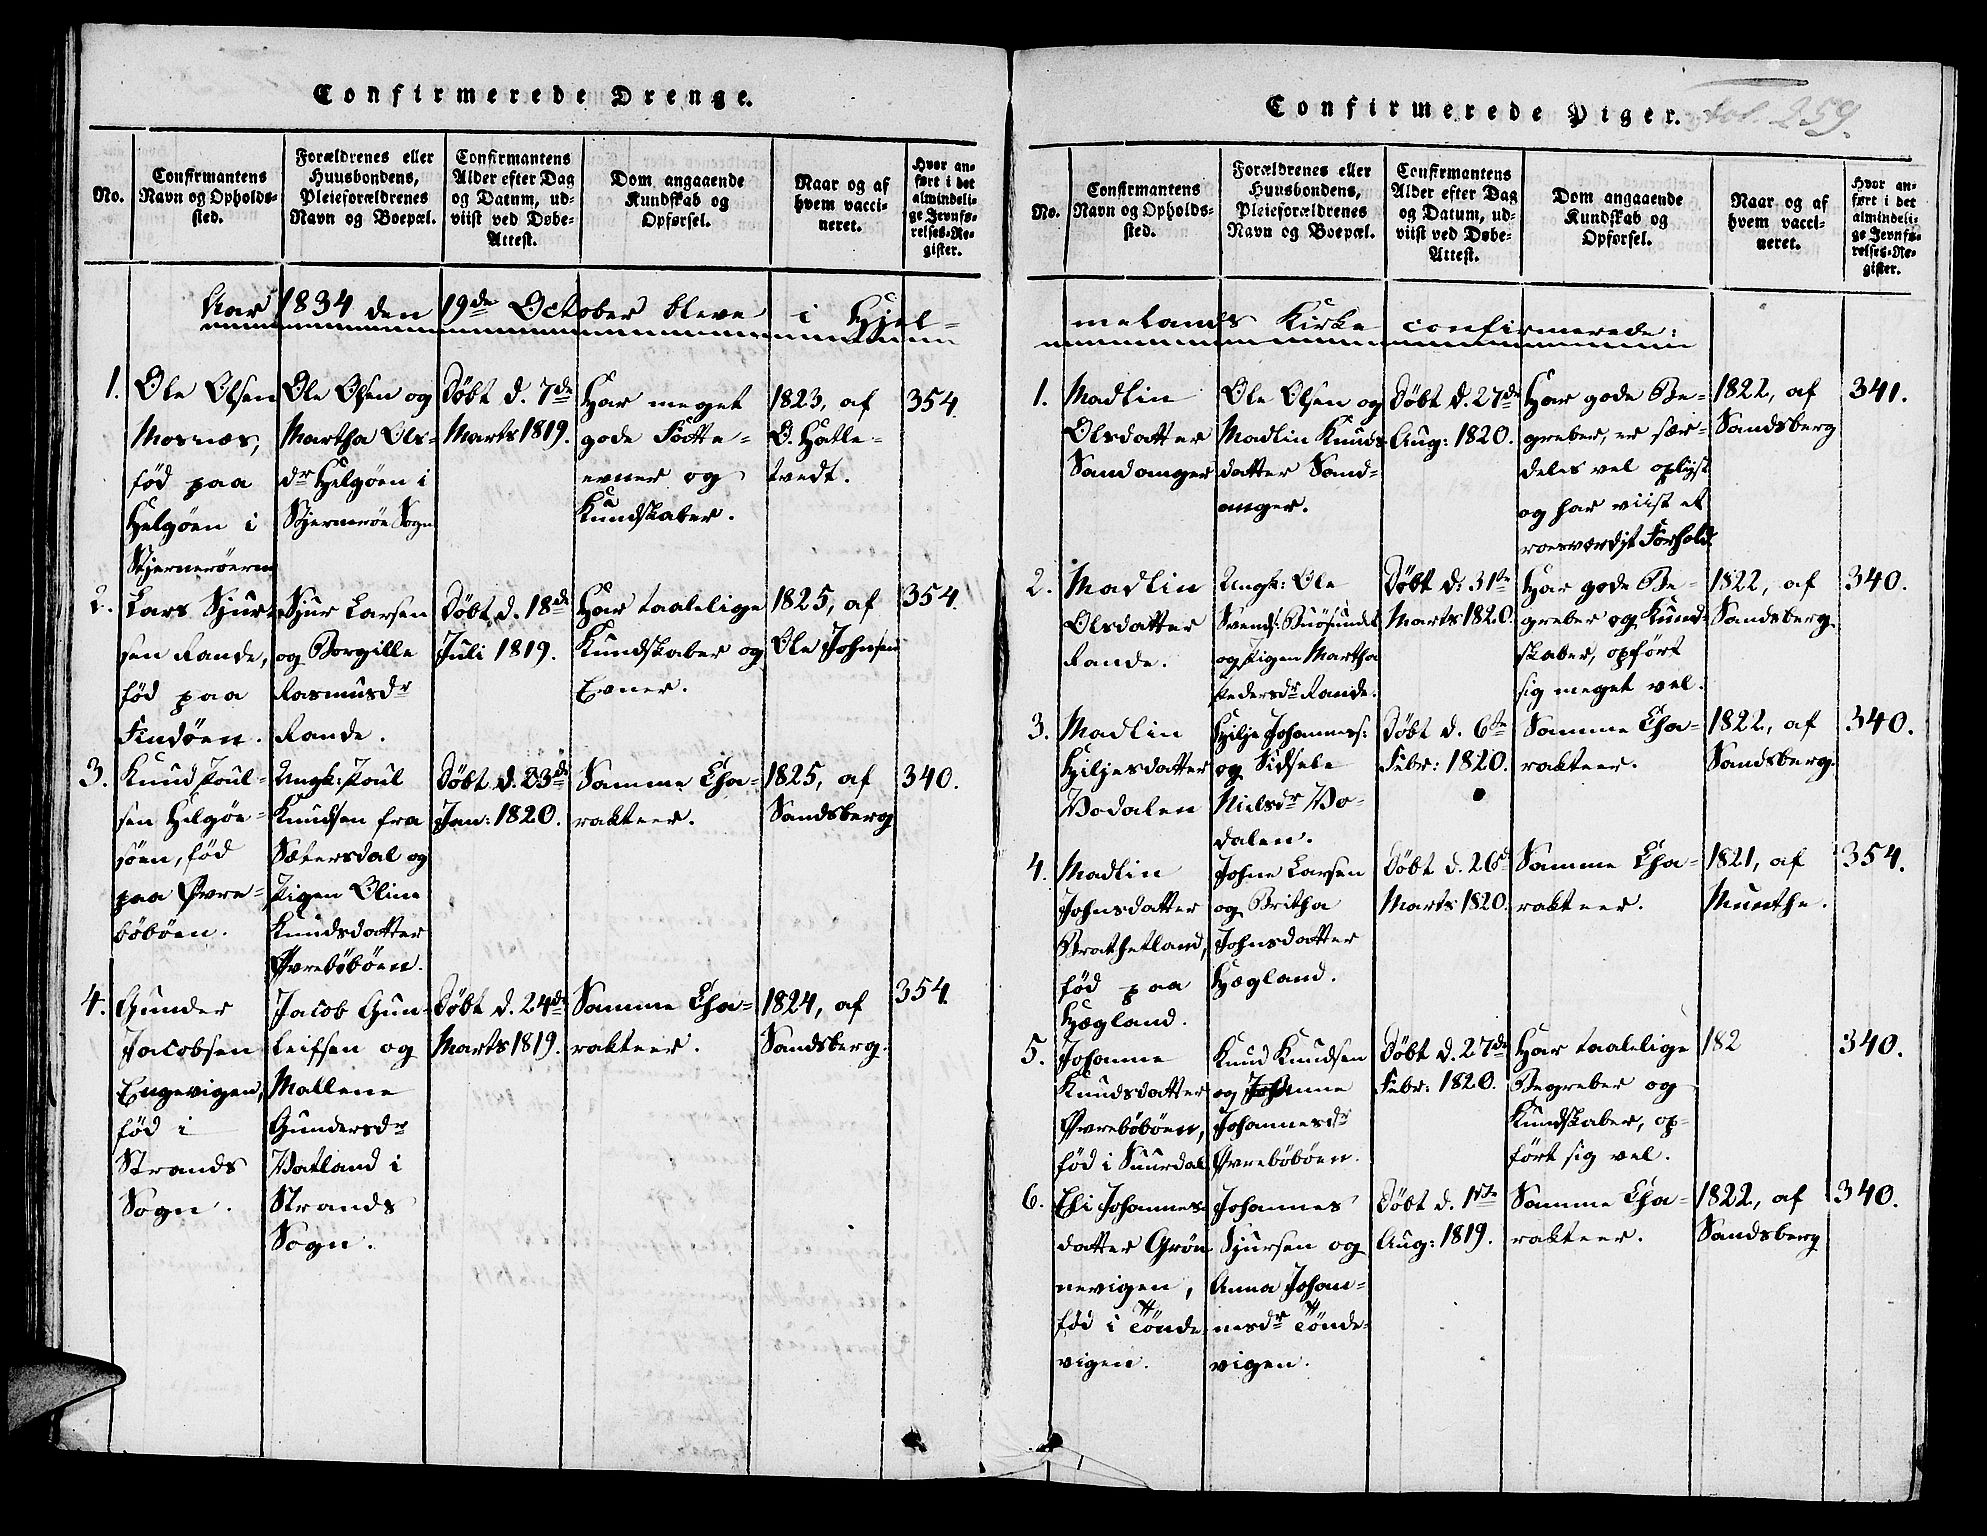 Confirmerede Drenge.
No.
Confirmantens
Navn og Opholds-
sted.
Forældrenes eller
Huusbondens,
Pleieforældrenes
Navn og Boepæl.
Confirmantens
Alder efter Dag
og Datum, ud-
viist ved Døbe-
Attest.
Dom angaaende
Kundskab og
Opførsel.
Naar og af
hvem vacci-
neret.
Hvor an-
ført i det
almindeli-
ge Jevnfø-
relses-Re-
gister.
Aar 1834 den 19de October bleve i Hjel-
1.
Ole Olsen
Mosnæs,
fød paa
Helgøen i
Stjernerøerne
Ole Olsen og
Martha Ols-
dr Helgøen i
Stjernerøe Sogn
Døbt d. 7de
Marts 1819.
Har meget
gode Fatte-
evner og
Kundskaber.
1823, af
O. Hatle-
tvedt.
354.
2.
Lars Sjur-
sen Rande,
fød paa
Findøen.
Sjur Larsen
og Borgille
Rasmusdr
Rande.
Døbt d. 18de
Juli 1819.
Har taalelige
Kundskaber og
Evner.
1825, af
Ole Johnsen
354.
3.
Knud Poul-
sen Helgøe-
søen, fød
paa Øvre-
bøbøen.
Ungk: Poul
Knudsen fra
Sætersdal og
Pigen Oline
Knudsdatter
Øvrebøbøen.
Døbt d. 23de
Jan: 1820.
Samme Cha-
rakteer.
1825, af
Sandsberg
340.
4.
Gunder
Jacobsen
Engevigen,
fød i
Strands
Sogn.
Jacob Gun-
leifsen og
Mallene
Gundersdr
Vatland i
Strands
Sogn.
Døbt d. 24de
Marts 1819.
Samme Cha-
rakteer.
1824, af
Sandsberg.
354.
Confirmerede Piger.
Fol. 259.
No.
Confirmantens
Navn og Opholds-
sted.
Forældrenes eller
Huusbondens,
Pleieforældrenes
Navn og Boepæl.
Confirmantens
Alder efter Dag
og Datum, ud-
viist ved Døbe-
Attest.
Dom angaaende
Kundskab og
Opførsel.
Naar og af
hvem vacci-
neret.
Hvor an-
ført i det
almindeli-
ge Jevnfø-
relses-Re-
gister.
melands Kirke confirmerede:
1.
Madlin
Olsdatter
Sandanger
Ole Olsen og
Madlin Knuds-
datter Sand-
anger.
Døbt d. 27de
Aug: 1820.
Har gode Be-
greber, er sær-
deles vel oplyst
og har viist et
roesværdigt Forhold.
1822, af
Sandsberg
341.
2.
Madlin
Olsdatter
Rande.
Ungk: Ole
Svends: Buøsundet
og Pigen Martha
Pedersdr Rande.
Døbt d. 31te
Marts 1820.
Har gode Be-
greber og Kund-
skaber, opført
sig meget vel.
1822, af
Sandsberg.
340.
3.
Madlin
Hiljesdatter
Vodalen
Hilje Johannes:
og Sidsele
Nielsdr Vo-
dalen.
Døbt d. 6te
Febr: 1820.
Samme Cha-
rakteer.
1822, af
Sandsberg.
340.
4.
Madlin
Johnsdatter
Brathetland,
fød paa
Hægland.
Johne Larsen
og Britha
Johnsdatter
Hægland.
Døbt d. 26d
Marts 1820.
Samme Cha-
rakteer.
1821, af
Munthe.
354.
5.
Johanne
Knudsdatter
Øvrebøbøen,
fød i Suurdal
Knud Knudsen
og Johanne
Johannesdr
Øvrebøbøen.
Døbt d. 27de
Febr: 1820.
Har taalelige
Begreber og
Kundskaber, op-
ført sig vel.
182
340.
6.
Eli Johannes
datter Grøn
nevigen,
fød i Tønde-
vigen.
Johannes
Sjursen og
Anna Johan-
nesdr Tønde-
vigen.
Døbt d. 1ste
Aug: 1819.
Samme Cha-
rakteer.
1822, af
Sandsberg
340.